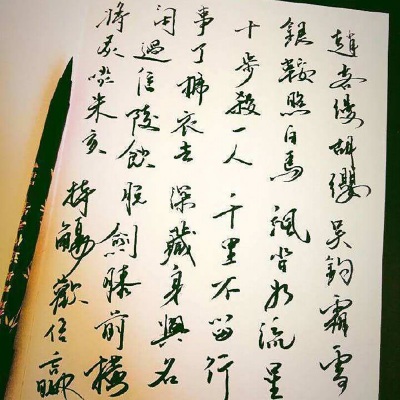 趙客縵胡纓吳鈎霜雪
銀鞍照白馬颯沓如流星
十步殺一人千里不留行
事了拂衣去深藏身與名
閑過信陵飲脫劍膝前橫
將炙啖朱亥持觴勸